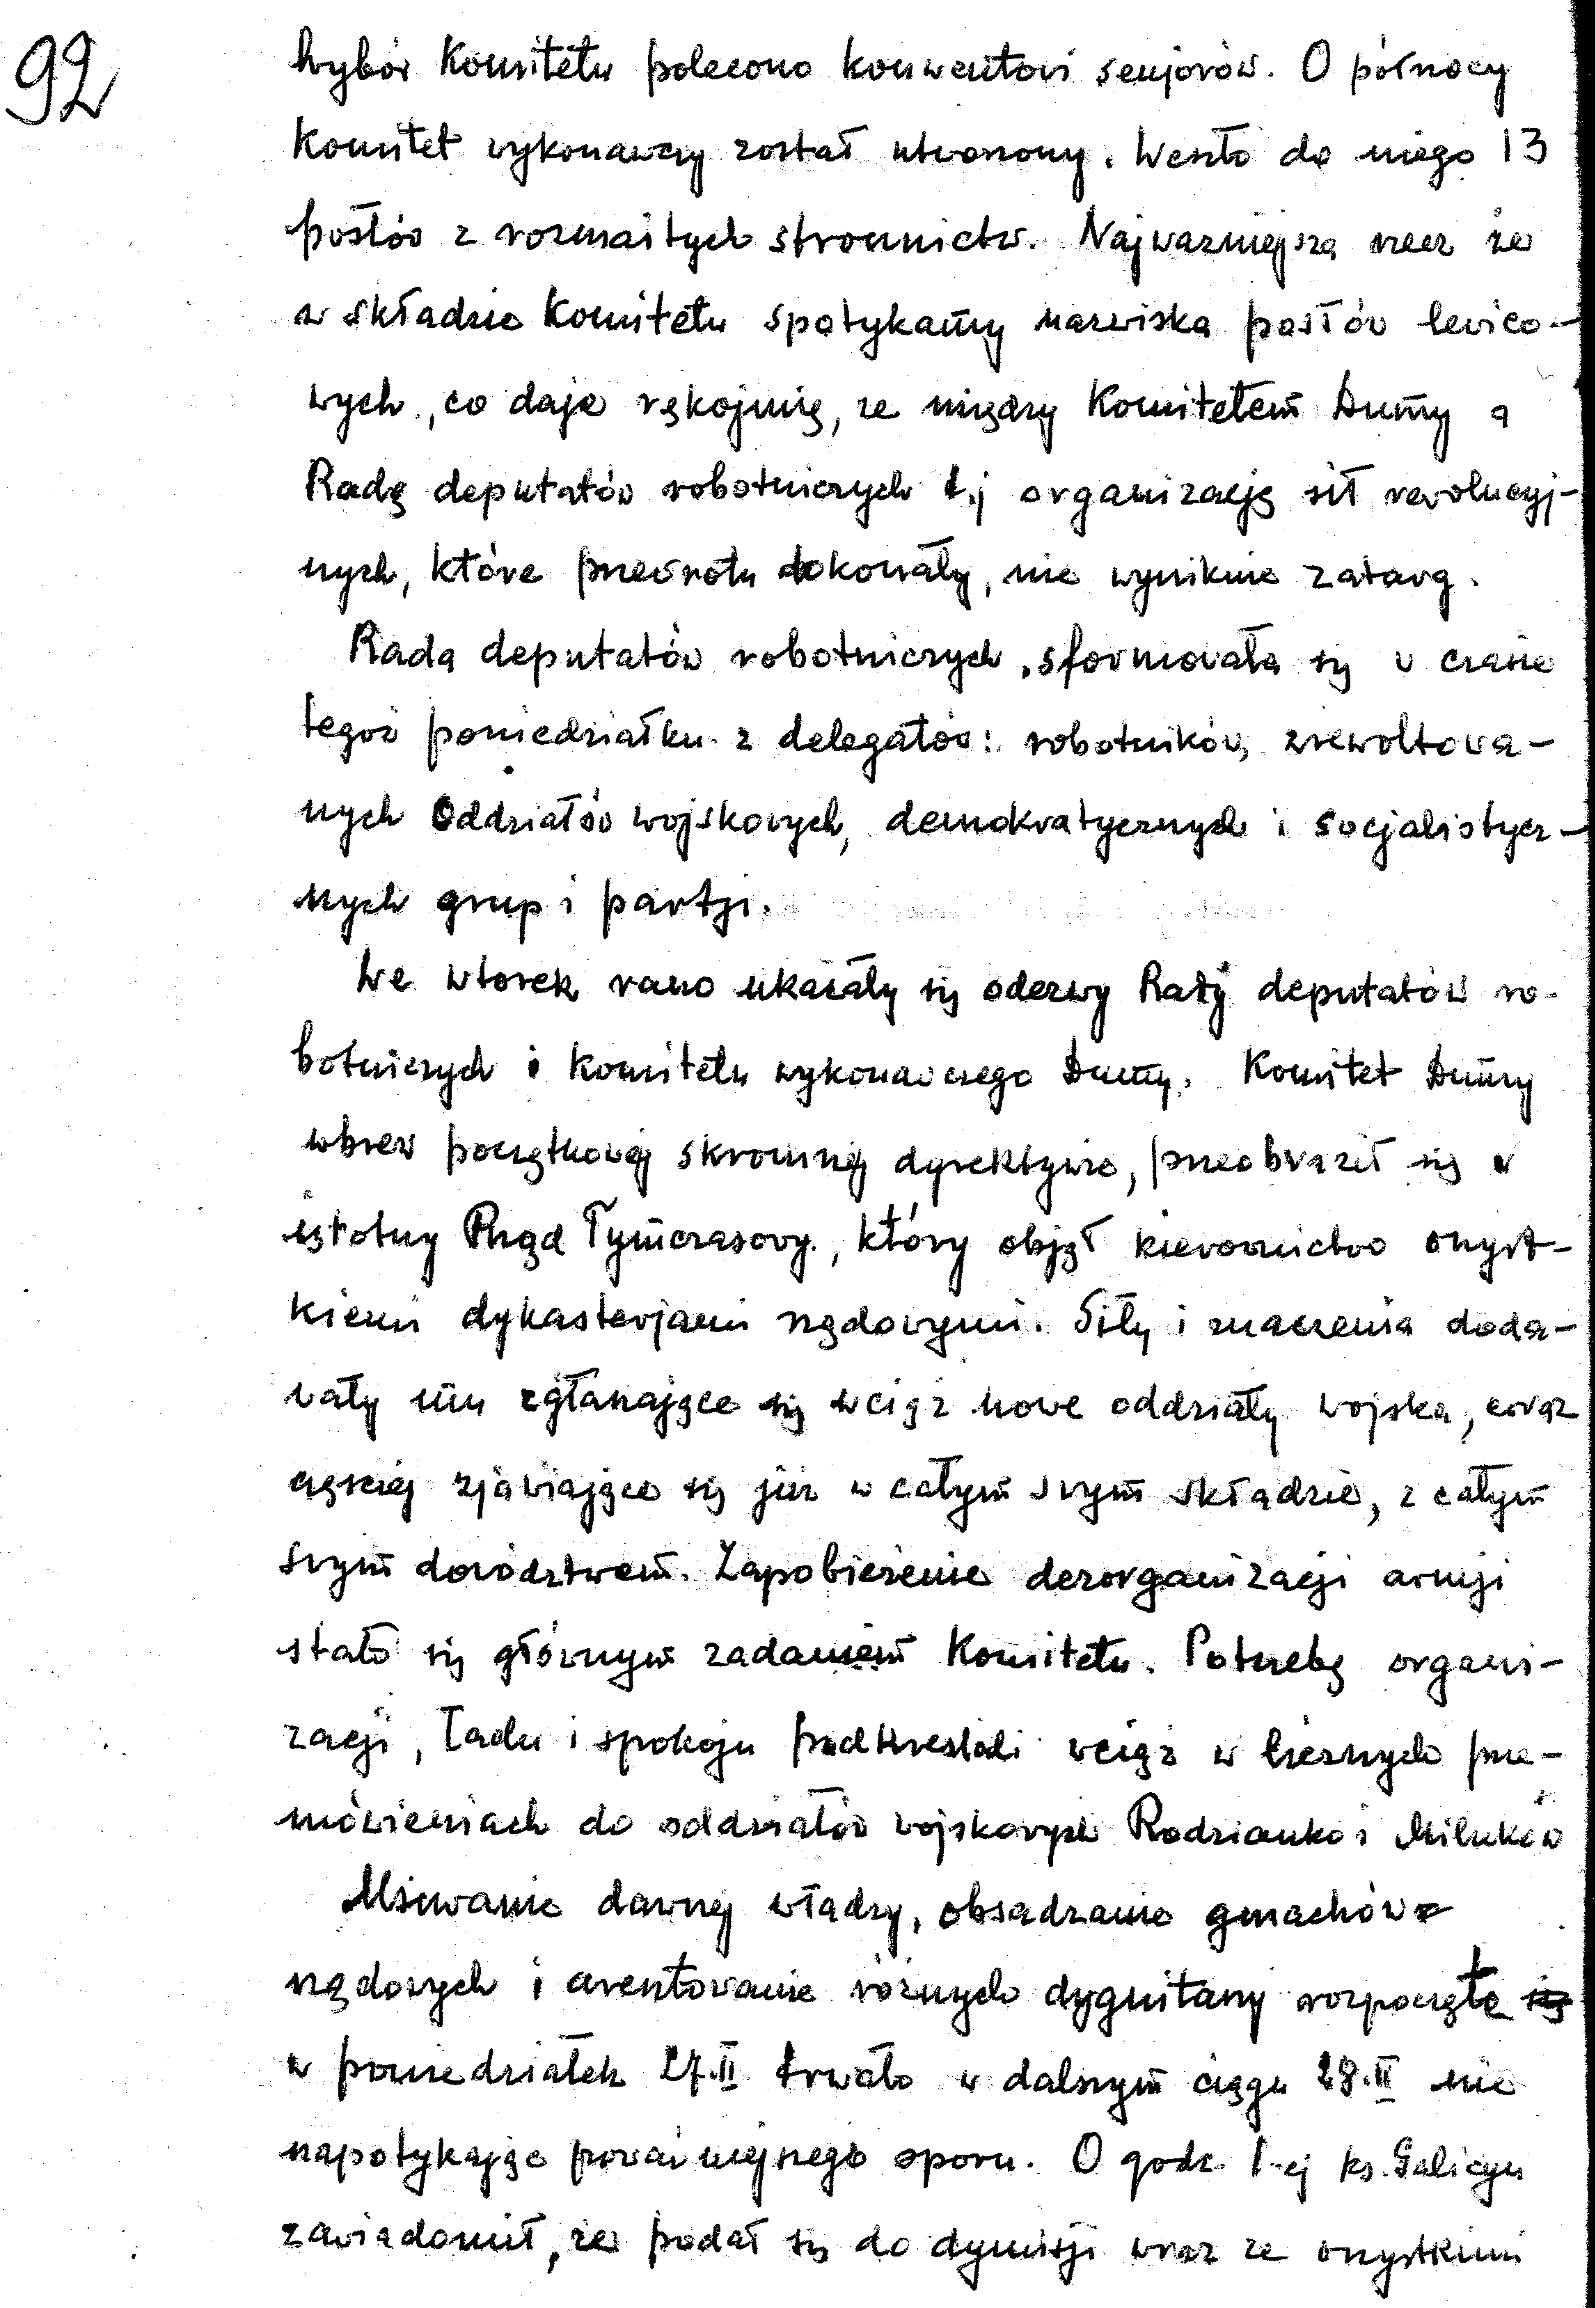 92
Wybór Komitetu polecono konwentowi senjorów. O północy
Komitet wykonawczy został utworzony. Weszło do niego 13
posłów z rozmaitych stronnictw. Najważniejsza rzecz że
w składzie Komitetu spotykamy nazwiska posłów lewico-
wych, co daje rękojmię, że między Komitetem Dumy a
Radą deputatów robotniczych t.j organizacją sił rewolucyj-
nych, które przewrotu dokonały, nie wyniknie zatarg.
Rada deputatów robotniczych sformowała się w czasie
tegoż poniedziałku z delegatów: robotników, zrewoltowa-
nych oddziałów wojskowych, demokratycznych i socjalistycz-
nych grup i partji.
We wtorek rano ukazały się odezwy Rady deputatów ro-
botniczych i Komitetu wykonawczego Dumy. Komitet Dumy
wbrew początkowej skromnej dyrektywie, przeobraził się w
istotny Rząd Tymczasowy, który objął kierownictwo wszyst-
kiemi dykasterjami rządowymi. Siły i znaczenia doda-
wały mu zgłaszające się wciąż nowe oddziały wojska, coraz
częściej zjawiające się już w całym swym składzie, z całym
swym dowództwem. Zapobieżenie dezorganizacji armji
stało się głównym zadaniem Komitetu. Potrzebę organi-
zacji, ładu i spokoju podkreślali wciąż w licznych prze-
mówieniach do oddziałów wojskowych Rodzianko i Milukow
Usuwanie dawnej władzy, obsadzanie gmachów
rządowych i aresztowanie różnych dygnitarzy rozpoczęte się
w poniedziałek 27.II trwało w dalszym ciągu 28.II nie
napotykając poważniejszego oporu. O godz. 1-ej ks. Galicyn
zawiadomił, że podał się do dymisji wraz ze wszystkimi